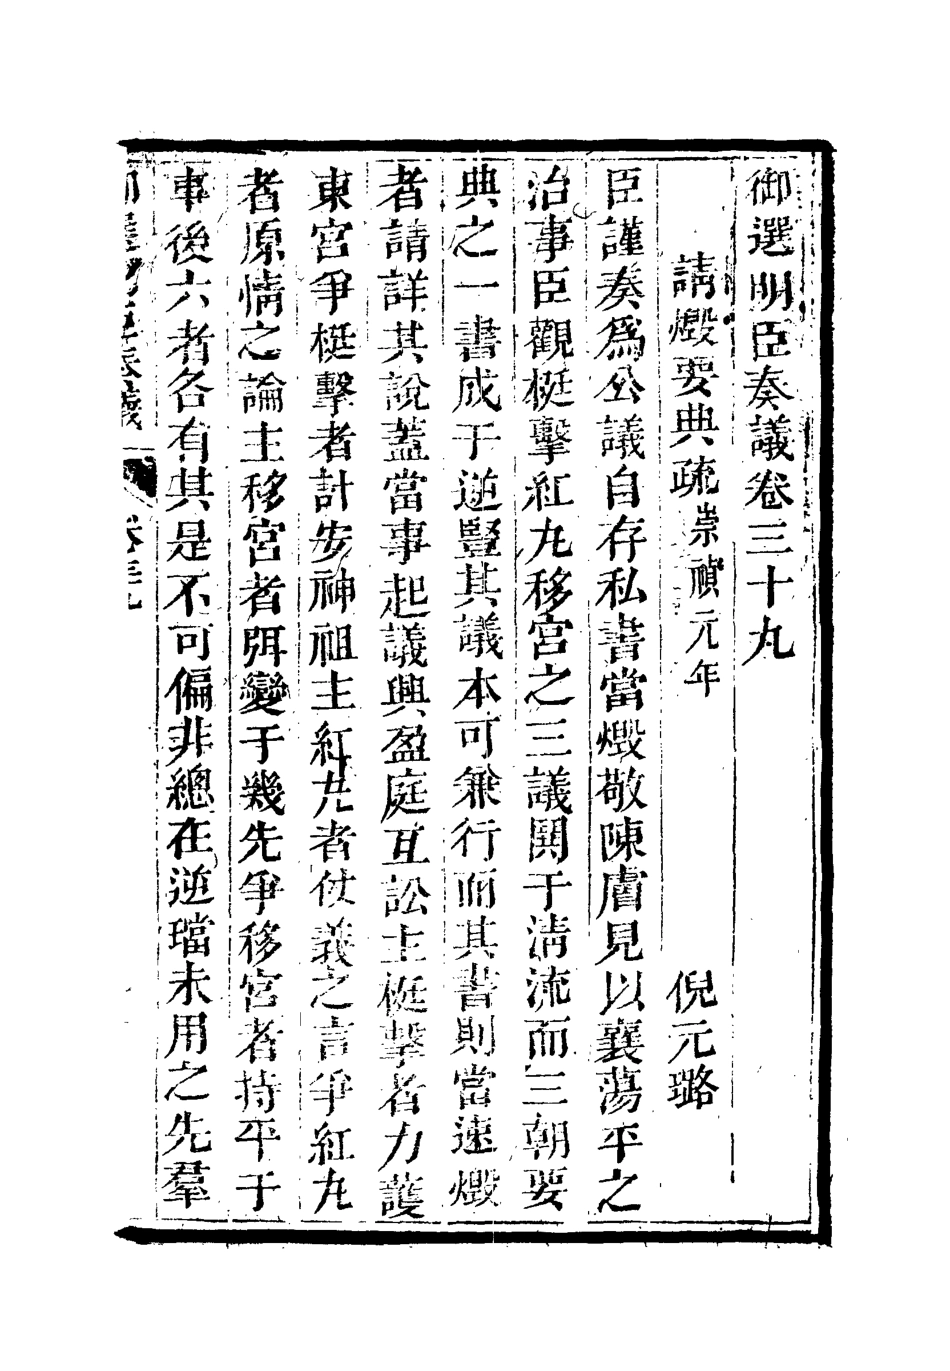 御選明臣奏議卷三十九
請燬要典疏崇禎元年 倪元璐
臣謹奏為公議自存私書當燬敬陳膚見以襄蕩平之
治事臣觀梃擊紅丸移宮之三議鬨于淸流而三朝要
典之一書成于逆豎其議本可兼行而其書則當速燬
者請詳其說蓋當事起議興盈庭互訟主梃擊者力護
東宮爭梃擊者計安神祖主紅丸者仗義之言爭紅丸
者原情之論主移宮者弭變于幾先爭移宮者持平于
事後六者各有其是不可偏非總在逆璫未用之先羣
御選明臣奏議 卷三九